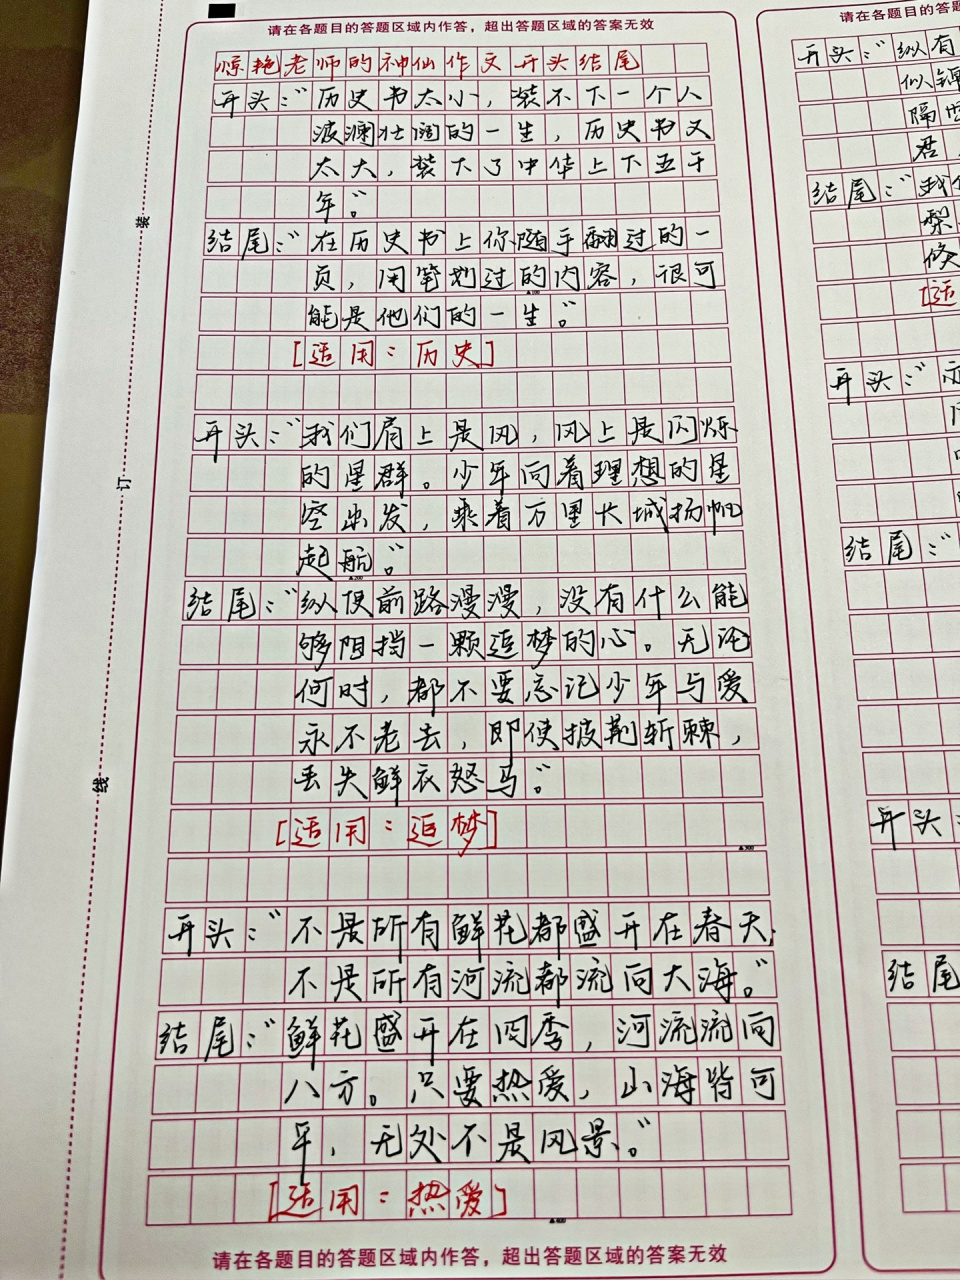 请在各题目的答题区域内作答，超出答题区域的答案无效
惊艳老师的神仙作文开头结尾
开头："历史书太小，装不下一个人
波澜壮阔的一生，历史书又
太大，装下了中华上下五千
年"。
结尾："在历史书上你随手翻过的一
页，用笔划过的内容，很可
能是他们的一生。"
[适用：历史]
开头："我们肩上是风，风上是闪烁
的星群。少年向着理想的星
空出发，乘着万里长城扬帆
起航。"
结尾："纵使前路漫漫，没有什么能
够阻挡一颗追梦的心。无论
何时，都不要忘记少年与爱
永不老去，即使披荆斩棘，
丢失鲜衣怒马。"
[适用：追梦]
开头："不是所有鲜花都盛开在春天；
不是所有河流都流向大海。"
结尾："鲜花盛开在四季，河流流向
八方。只要热爱，山海皆可
平，无处不是风景。"
[适用：热爱]
请在各题目的答题区域内作答，超出答题区域的答案无效
装
订
线
请在各题目的答题
开头："纵有
隔
君
结尾："我
[适
开头：
结尾："
开头：
结尾